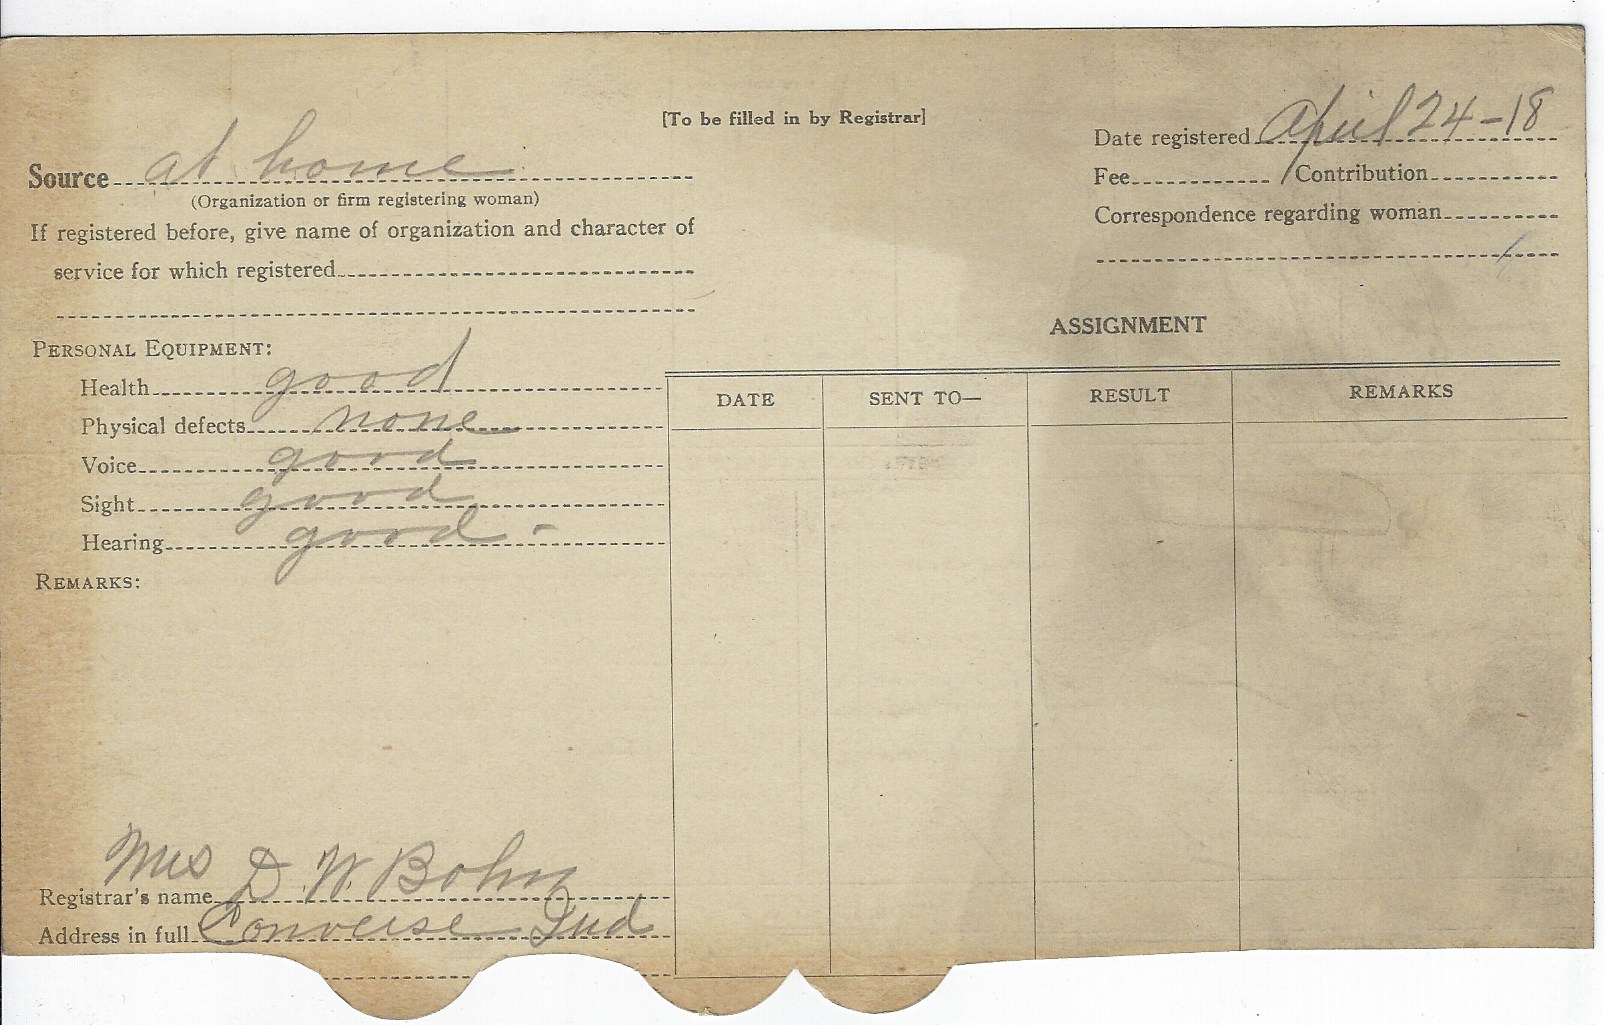 [To be filled in by Registrar]
Source at home
(Organization or firm registering woman)
If registered before, give name of organization and character of
service for which registered
PERSONAL EQUIPMENT:
Health good
Physical defects none
Voice good
Sight good
Hearing good -
REMARKS:
Mrs
Registrar's name D. W. Bohn
Address in full Converse Ind
Date registered April 24-18
Fee Contribution
Correspondence regarding woman
ASSIGNMENT
DATE SENT TO— RESULT REMARKS